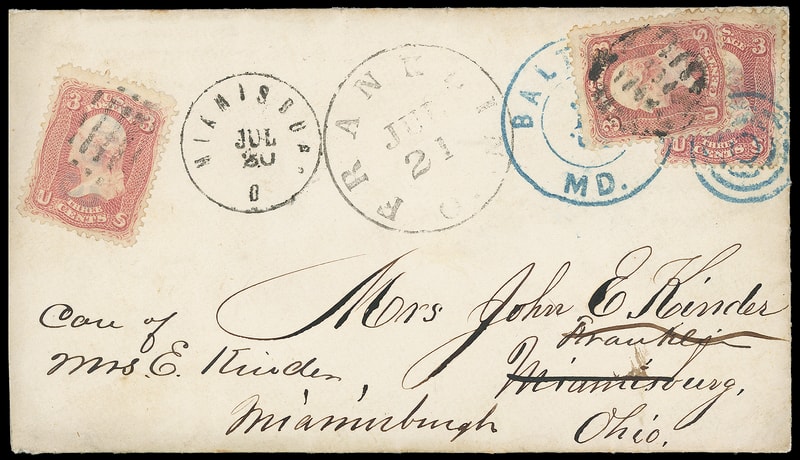 3 3
U.S. POSTAGE
U S
THREE
CENTS
MIAMISBURG
JUL
20
O
FRANKLIN
JUL
21
O
BAL
MD.
3
U
3
U
THREE
CENTS
3
Mrs John E. Kinder
Franklin
Miamisburg,
Ohio.
Care of
Mrs. E. Kinder
Miamisburgh